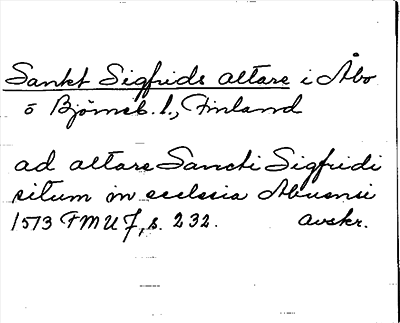 Sankt Sigfrids altare i Åbo
o Björneb. l., Finland
ad altare Sancti Sigfridi
situm in ecclesia Abuensi
1513 FMU 7, s. 232. avskr.